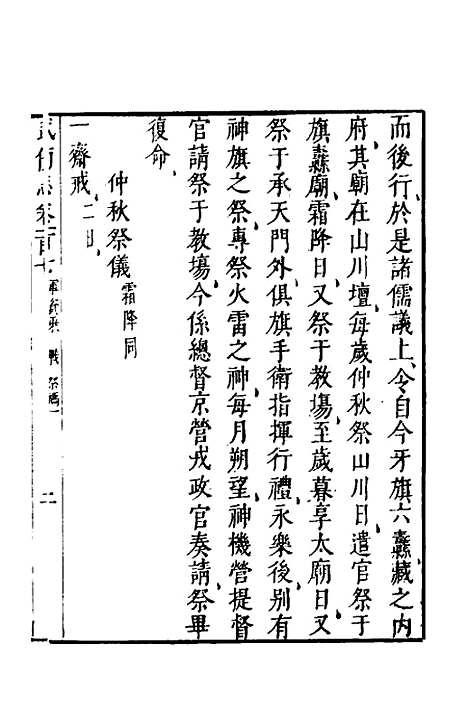 而後行於是諸儒議上令自今牙旗六纛藏之內
府其廟在山川壇每歲仲秋祭山川日遣官祭于
旗纛廟霜降日又祭于教場至歲暮享太廟日又
祭于承天門外俱旗手衛指揮行禮永樂後别有
神旗之祭專祭火雷之神每月朔望神機營提督
官請祭于教場今係總督京營戎政官奏請祭畢
復命
仲秋祭儀 霜降同
一齋戒二日
武備志卷一百七 軍行 戰 祭禡一 二